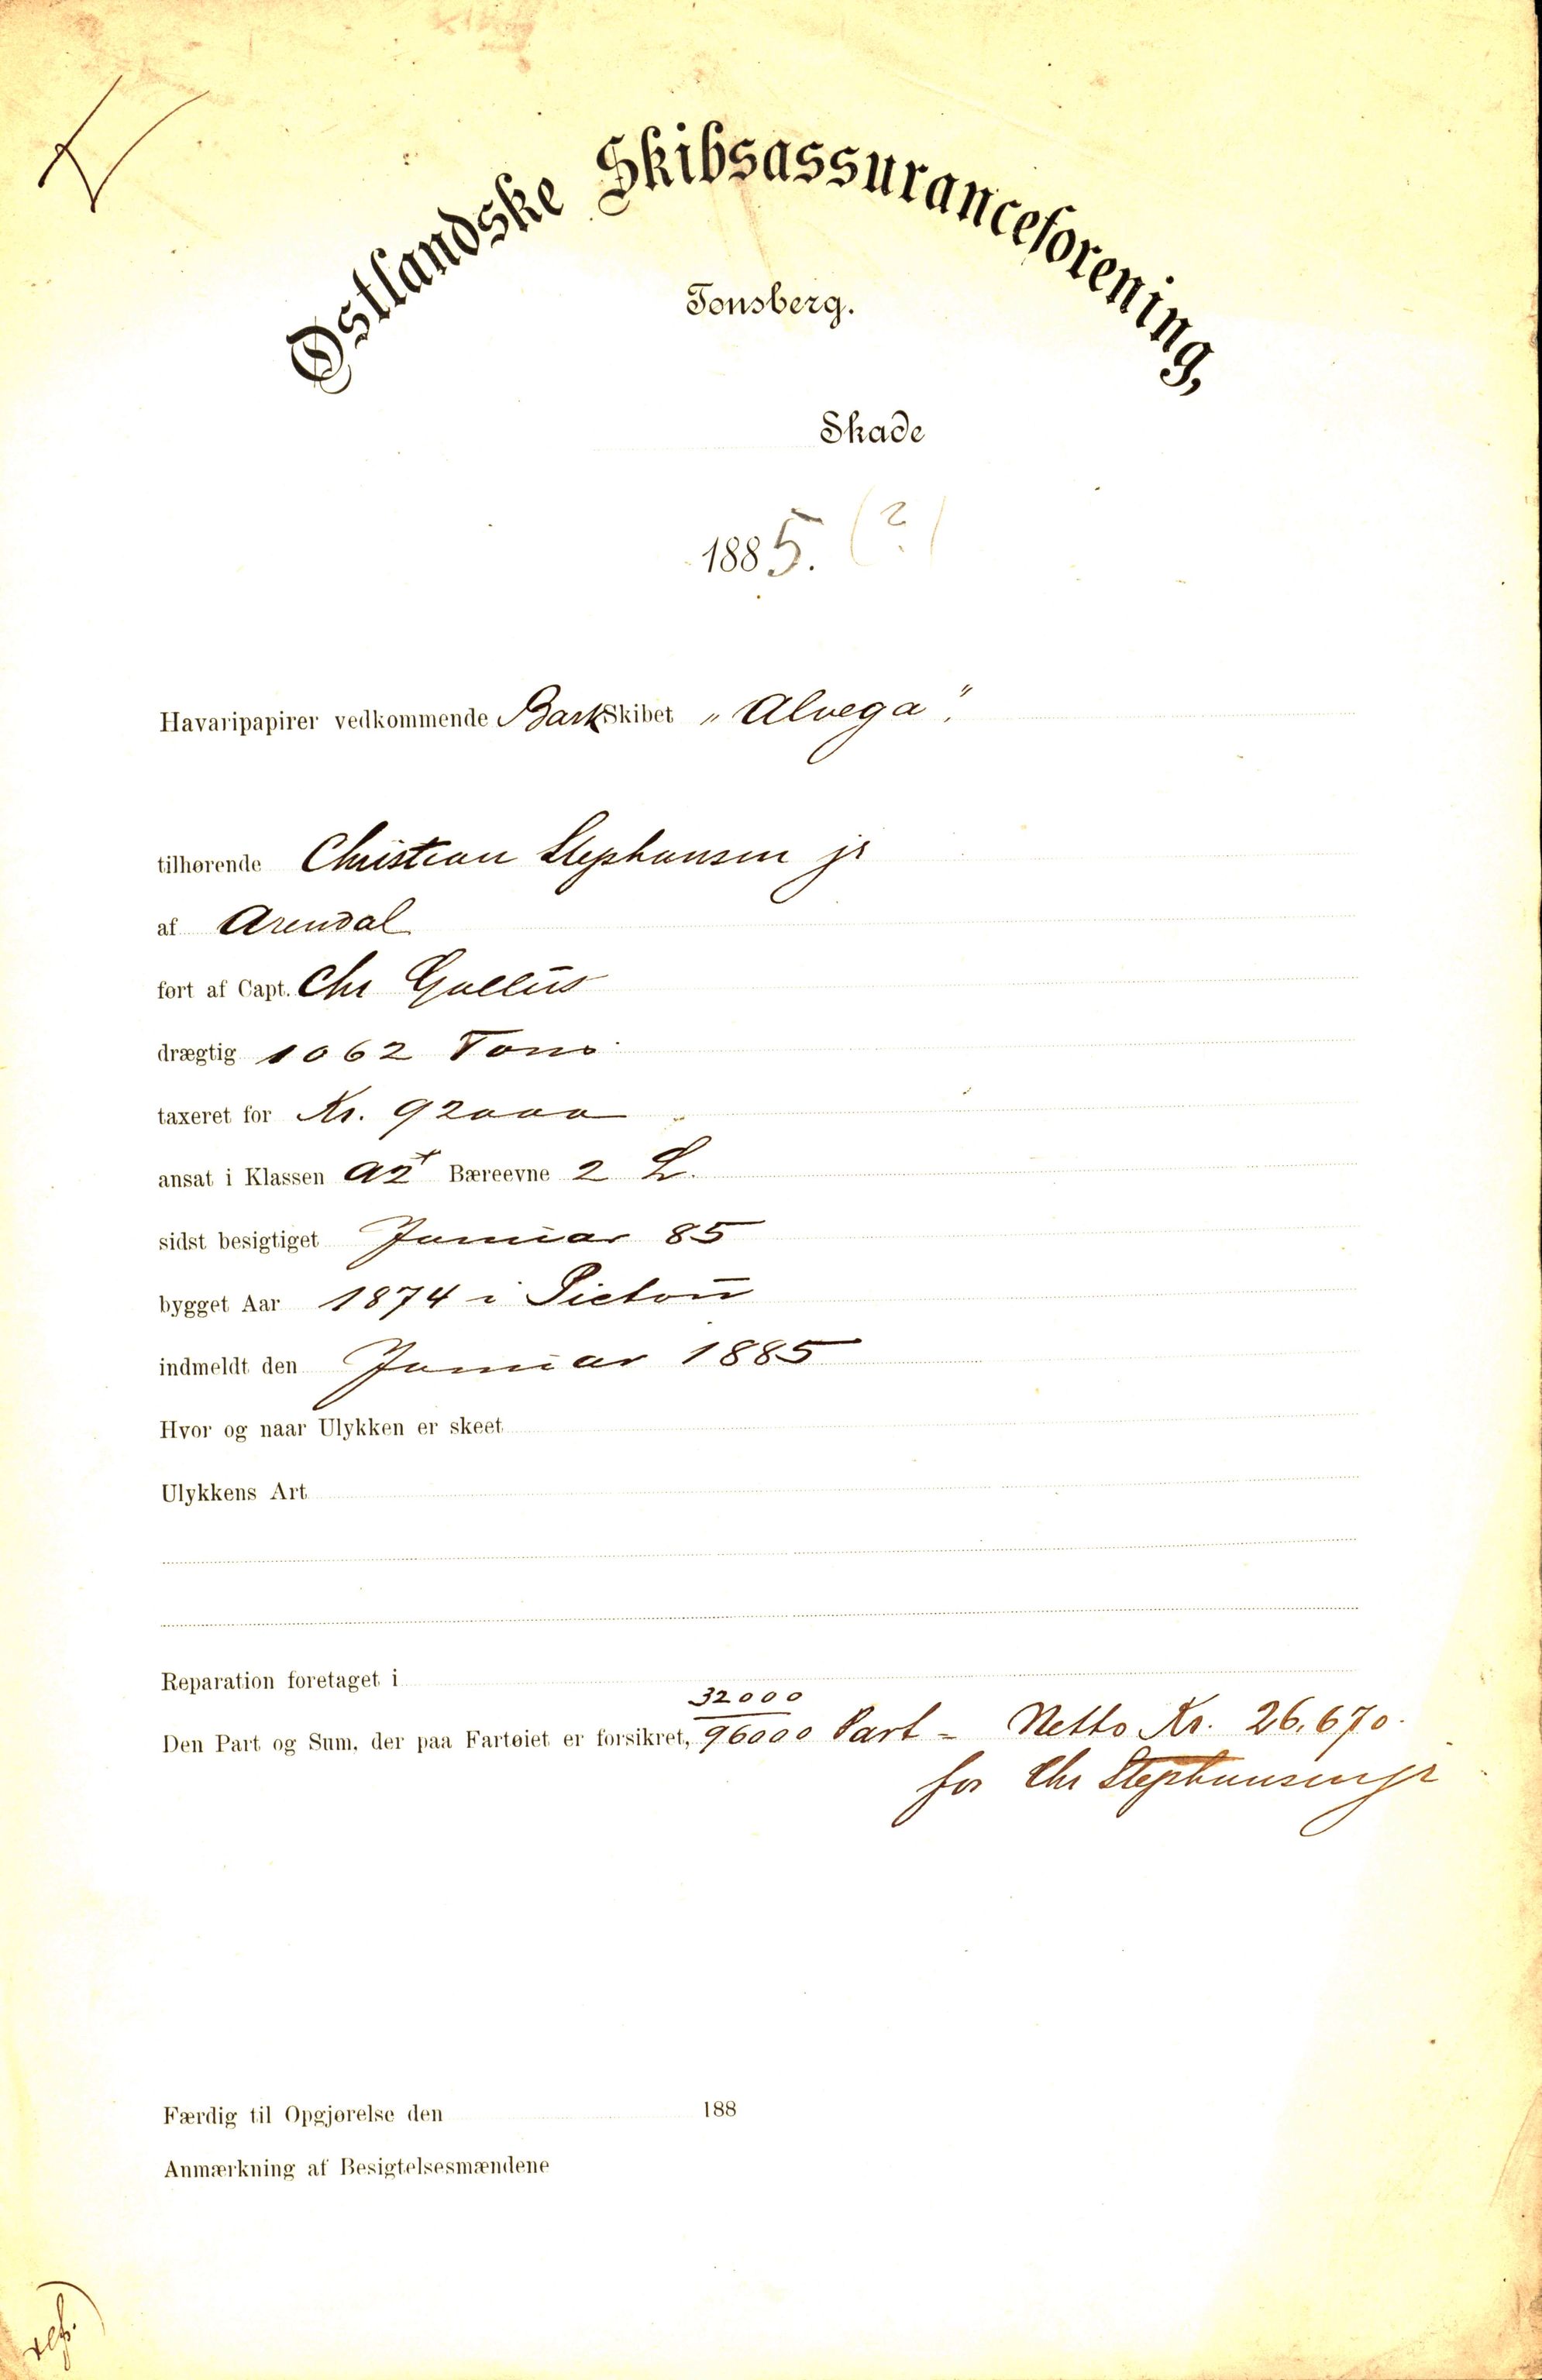 Østlandske Skibsassuranceforening,
Tonsberg.
Skade
1885. (?)
Havaripapirer vedkommende Bark Skibet „Alvega”.
tilhørende Christian Stephansen jr
af Arendal
ført af Capt. Chr Gullus
drægtig 1062 Tons
taxeret for Kr. 92000
ansat i Klassen A2+ Bæreevne 2 L.
sidst besigtiget Januar 85
bygget Aar 1874 i Pictou
indmeldt den Januar 1885
Hvor og naar Ulykken er skeet
Ulykkens Art
Reparation foretaget i
Den Part og Sum, der paa Fartøiet er forsikret, 32000/96000 Part = Netto Kr. 26,670.
for Chr Stephansen jr
Færdig til Opgjørelse den 188
Anmærkning af Besigtelsesmændene